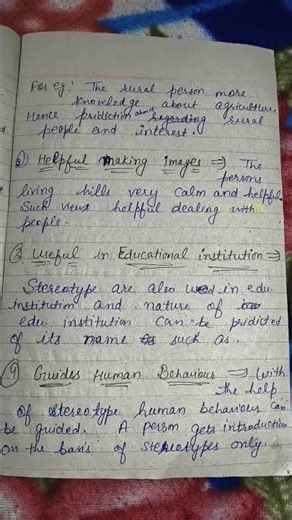 For eg:- The rural person more
knowledge about agriculture.
Hence pridiction about regarding rural
people and interest.
Helpful making images ⇒ The
persons
living hills very calm and helpful.
Such views helpful dealing with
people-
③ Useful in Educational institution ⇒
Stereotype are also used in edu.
institution and nature of
edu. institution can be pridicted
of its name such as.
Guides Human Behaviour ⇒ (with
the help
of stereotype human behaviour can
be guided. A person gets introduction
on the basis of stereotypes only.